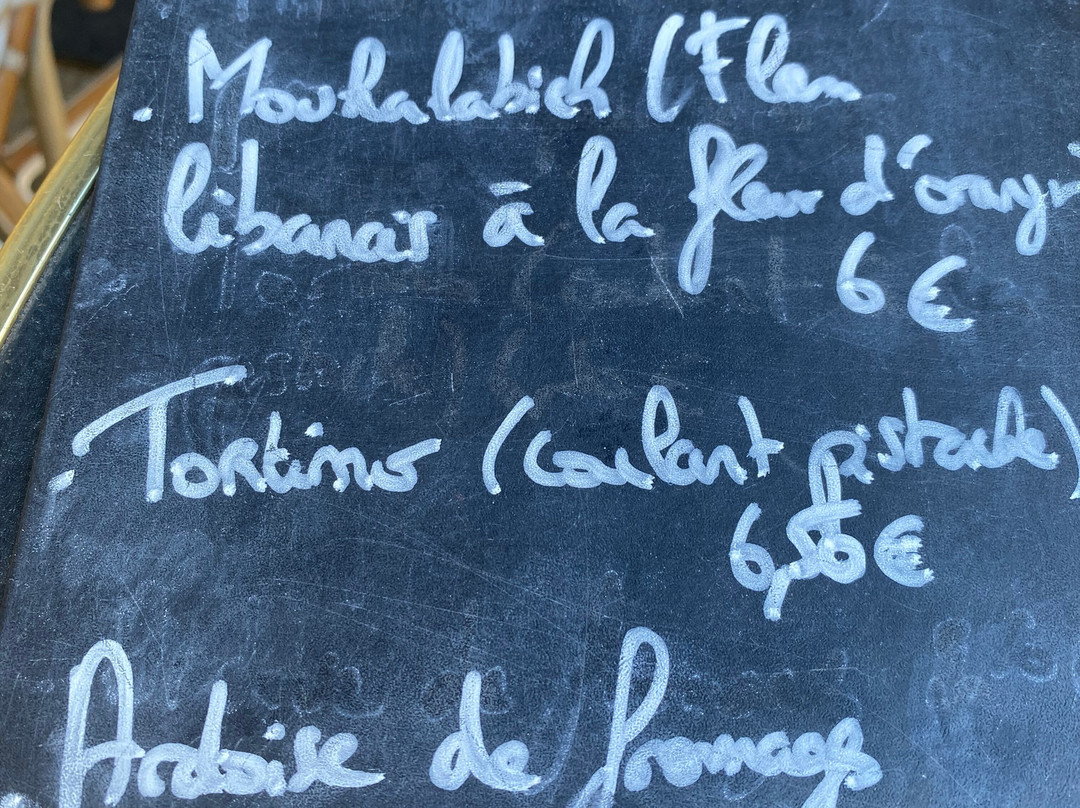 . Mouhalabieh (Flan
libanais à la fleur d'orang
6 €
. Tortino (coulant pistache)
6,50 €
Ardoise de fromage